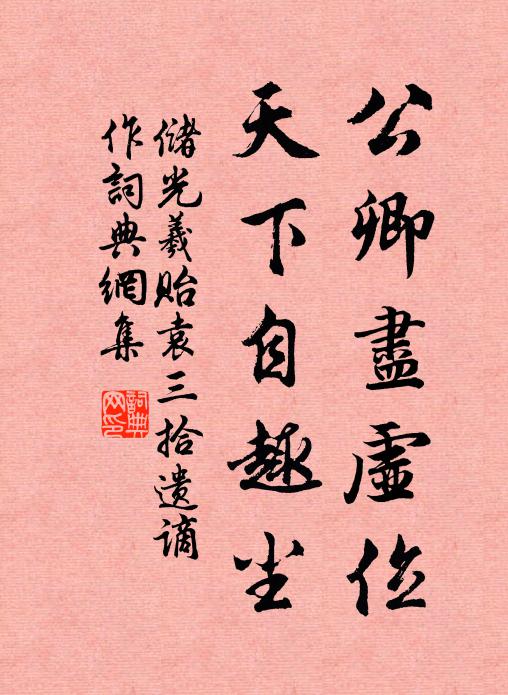 公卿盡虛位
天下自趣尘
儲光羲貽袁三拾遺謫
作詞典網集
詞典网印